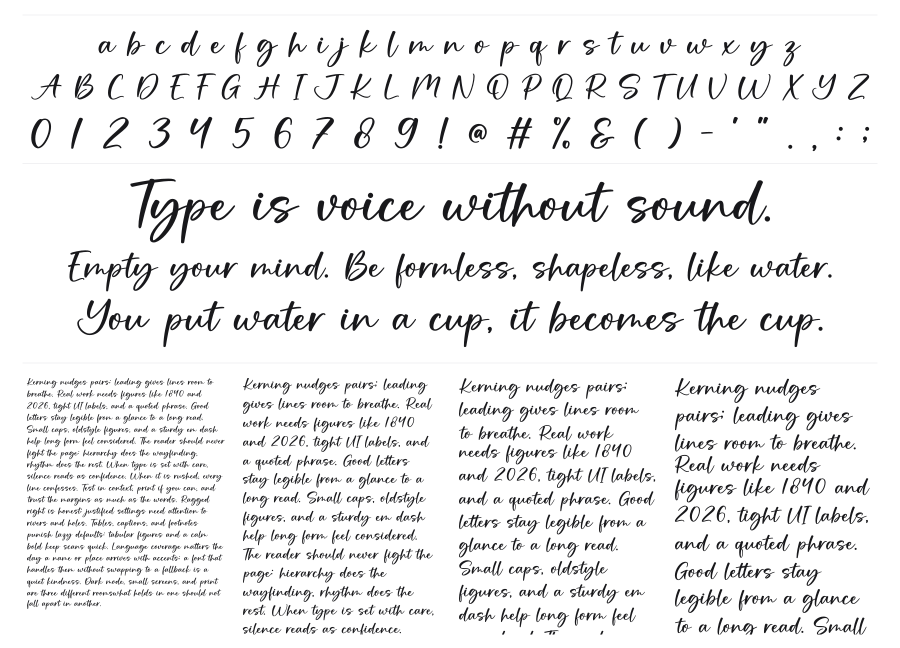 a b c d e f g h i j k l m n o p q r s t u v w x y z
A B C D E F G H I J K L M N O P Q R S T U V W X Y Z
0 1 2 3 4 5 6 7 8 9 ! @ # % & ( ) - ' " . , : ;
Type is voice without sound.
Empty your mind. Be formless, shapeless, like water.
You put water in a cup, it becomes the cup.
Kerning nudges pairs; leading gives lines room to
breathe. Real work needs figures like 1840 and
2026, tight UI labels, and a quoted phrase. Good
letters stay legible from a glance to a long read.
Small caps, oldstyle figures, and a sturdy em dash
help long form feel considered. The reader should never
fight the page; hierarchy does the wayfinding,
rhythm does the rest. When type is set with care,
silence reads as confidence. When it is rushed, every
line confesses. Test in context, print if you can, and
trust the margins as much as the words. Ragged
right is honest; justified settings need attention to
rivers and holes. Tables, captions, and footnotes
punish lazy defaults; tabular figures and a calm
bold keep scans quick. Language coverage matters the
day a name or place arrives with accents; a font that
handles them without swapping to a fallback is a
quiet kindness. Dark mode, small screens, and print
are three different rooms—what holds in one should not
fall apart in another.
Kerning nudges pairs; leading
gives lines room to breathe. Real
work needs figures like 1840
and 2026, tight UI labels, and
a quoted phrase. Good letters
stay legible from a glance to a
long read. Small caps, oldstyle
figures, and a sturdy em dash
help long form feel considered.
The reader should never fight the
page; hierarchy does the
wayfinding, rhythm does the
rest. When type is set with care,
silence reads as confidence.
Kerning nudges pairs;
leading gives lines room
to breathe. Real work
needs figures like 1840
and 2026, tight UI labels,
and a quoted phrase. Good
letters stay legible from a
glance to a long read.
Small caps, oldstyle
figures, and a sturdy em
dash help long form feel
Kerning nudges
pairs; leading gives
lines room to breathe.
Real work needs
figures like 1840 and
2026, tight UI labels,
and a quoted phrase.
Good letters stay
legible from a glance
to a long read. Small